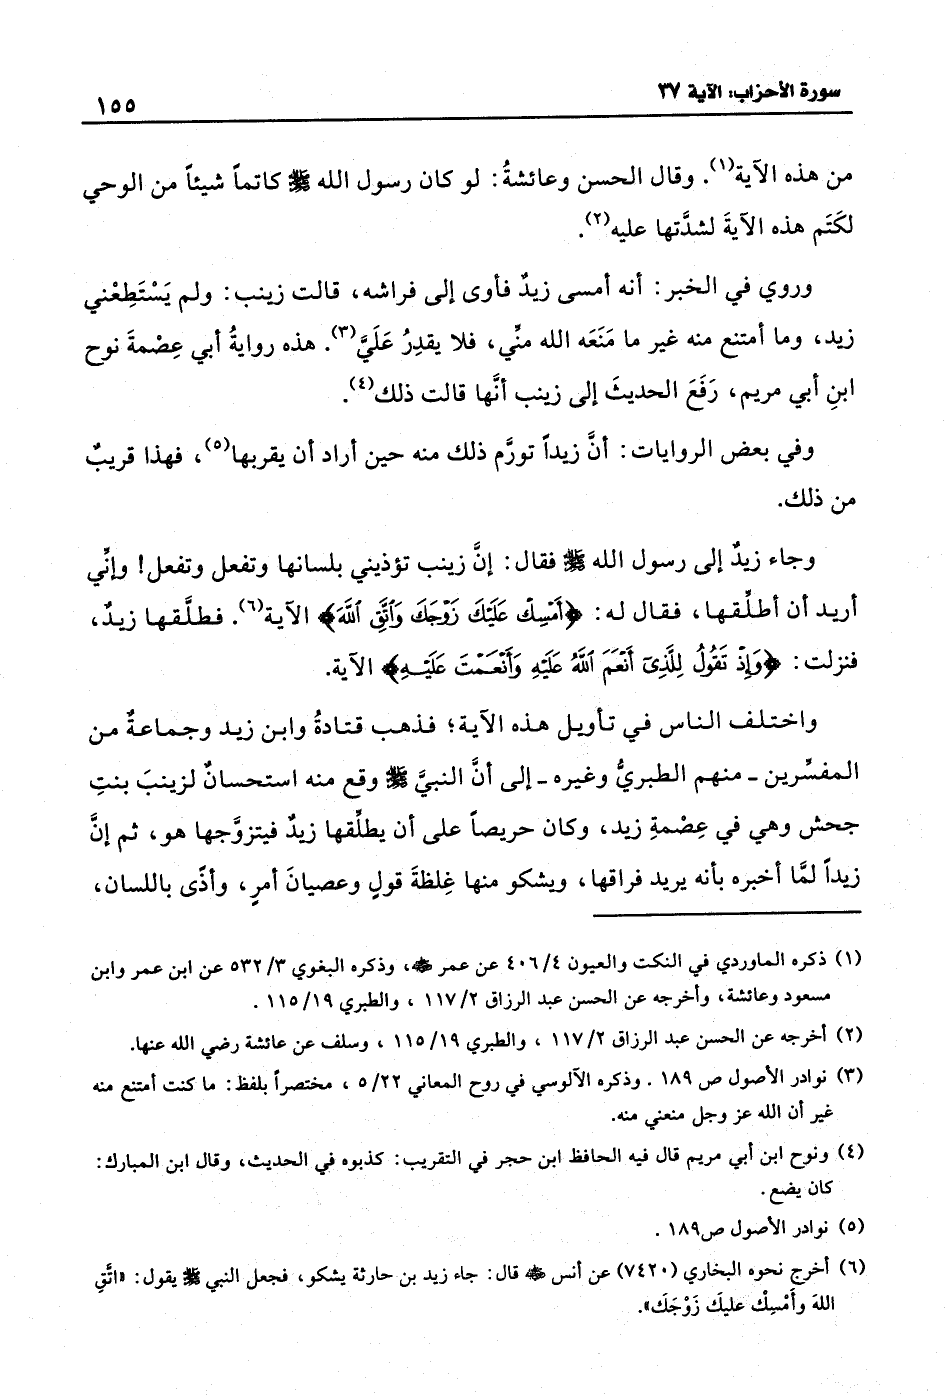 سورة الأحزاب: الآية ٣٧
١٥٥
من هذه الآية(١). وقال الحسن وعائشةُ: لو كان رسول الله ﷺ كاتماً شيئاً من الوحي
لكَتَم هذه الآيةَ لشدَّتها عليه(٢).
وروي في الخبر: أنه أمسى زيدٌ فأوى إلى فراشه، قالت زينب: ولم يَسْتَطِعْني
زيد، وما أمتنع منه غير ما مَنَعَه الله منِّي، فلا يقدِرُ عَلَيَّ(٣). هذه روايةُ أبي عِصْمةَ نوح
ابنِ أبي مريم، رَفَعَ الحديثَ إلى زينب أنَّها قالت ذلك(٤).
وفي بعض الروايات: أنَّ زيداً تورَّم ذلك منه حين أراد أن يقربها(٥)، فهذا قريبٌ
من ذلك.
وجاء زيدٌ إلى رسول الله ﷺ فقال: إنَّ زينب تؤذيني بلسانها وتفعل وتفعل! وإنِّي
أريد أن أطلِّقها، فقال له: ﴿أَمْسِكْ عَلَيْكَ زَوْجَكَ وَٱتَّقِ ٱللَّهَ﴾ الآية(٦). فطلَّقها زيدٌ،
فنزلت: ﴿وَإِذْ تَقُولُ لِلَّذِىٓ أَنْعَمَ ٱللَّهُ عَلَيْهِ وَأَنْعَمْتَ عَلَيْهِ﴾ الآية.
واختلف الناس في تأويل هذه الآية؛ فذهب قتادةُ وابن زيد وجماعةٌ من
المفسِّرين ـ منهم الطبريُّ وغيره ـ إلى أنَّ النبيَّ ﷺ وقع منه استحسانٌ لزينبَ بنتِ
جحش وهي في عِصْمةِ زيد، وكان حريصاً على أن يطلِّقها زيدٌ فيتزوَّجها هو، ثم إنَّ
زيداً لمَّا أخبره بأنه يريد فراقها، ويشكو منها غِلظةَ قولٍ وعصيانَ أمرٍ، وأذًى باللسان،
(١) ذكره الماوردي في النكت والعيون ٤٠٦/٤ عن عمر ﵁، وذكره البغوي ٥٣٢/٣ عن ابن عمر وابن
مسعود وعائشة، وأخرجه عن الحسن عبد الرزاق ١١٧/٢ ، والطبري ١١٥/١٩ .
(٢) أخرجه عن الحسن عبد الرزاق ١١٧/٢ ، والطبري ١١٥/١٩ ، وسلف عن عائشة رضي الله عنها.
(٣) نوادر الأصول ص ١٨٩ . وذكره الآلوسي في روح المعاني ٥/٢٢ ، مختصراً بلفظ: ما كنت أمتنع منه
غير أن الله عز وجل منعني منه.
(٤) ونوح ابن أبي مريم قال فيه الحافظ ابن حجر في التقريب: كذبوه في الحديث، وقال ابن المبارك:
كان يضع.
(٥) نوادر الأصول ص١٨٩ .
(٦) أخرج نحوه البخاري (٧٤٢٠) عن أنس ﵁ قال: جاء زيد بن حارثة يشكو، فجعل النبي ﷺ يقول: «اتَّقِ
اللهَ وأَمْسِكْ عليكَ زَوْجَكَ».